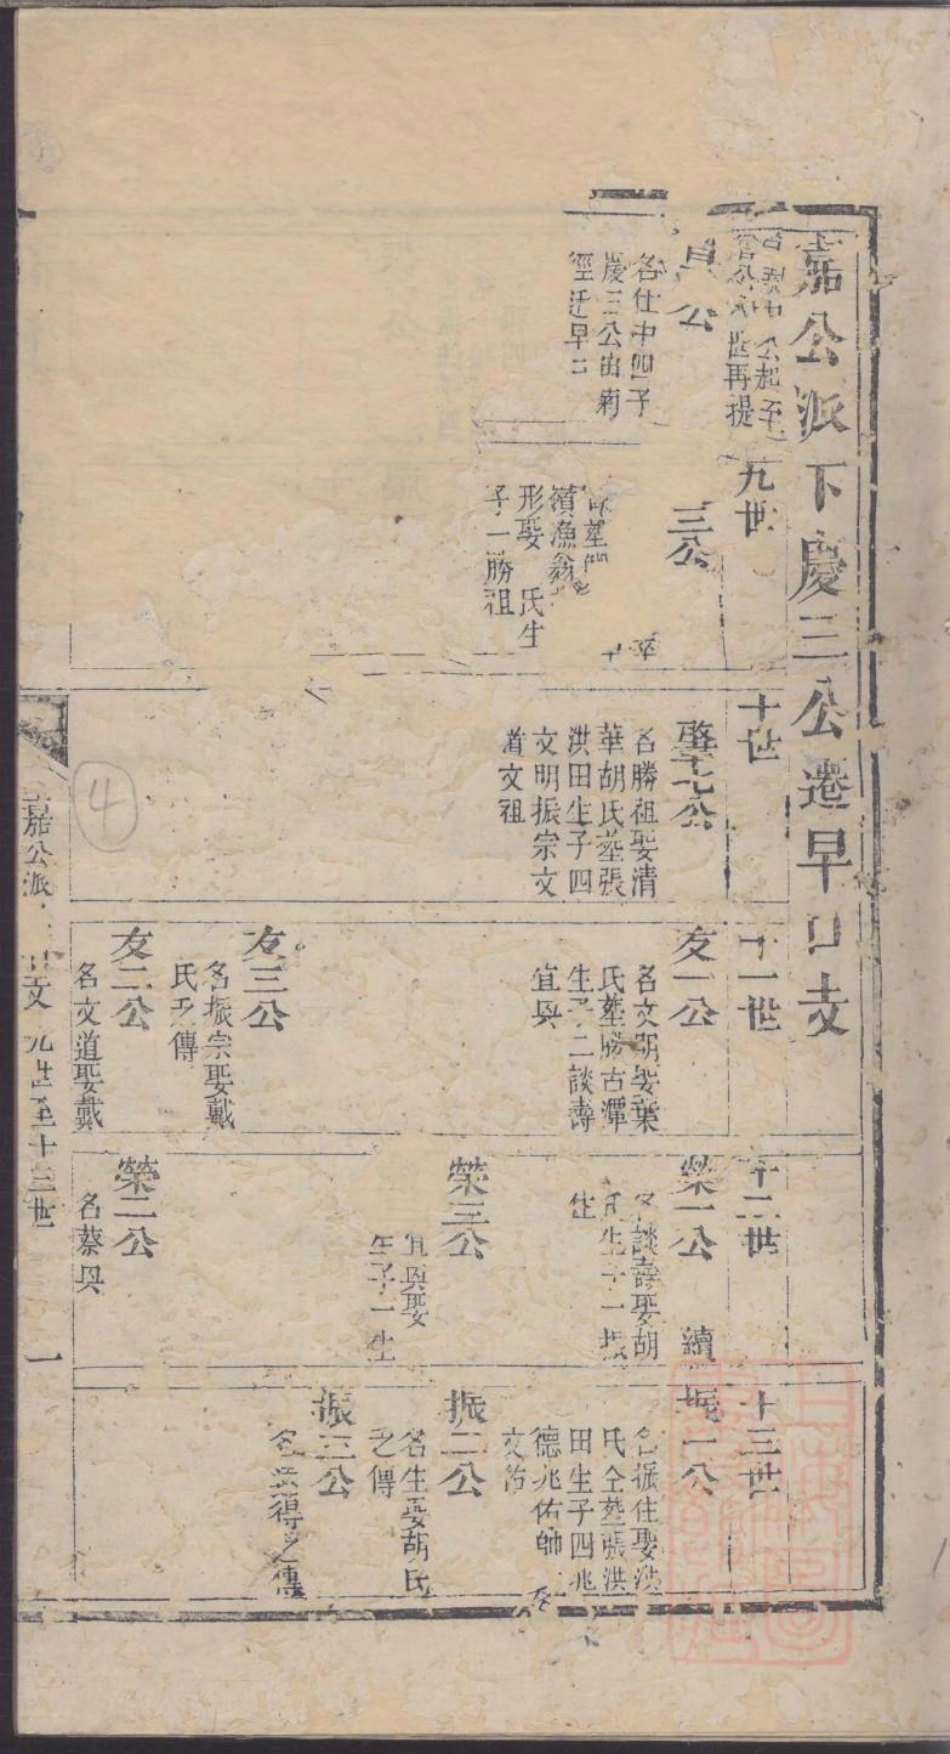 嘉公派下慶三公遷早口支
公起至
世再提
公
名仕中四子
慶三公由荊
徑迁早口
九世
三公
墓
濱漁翁
形娶 氏生
子一勝祖
十世
肇十七公
名勝祖娶清
華胡氏塟張
洪田生子四
文明振宗文
道文祖
十一世
友一公
名文明娶葉
氏塟勝古潭
生子二談壽
宜與
友三公
名振宗娶戴
氏乏傳
友二公
名文道娶戴
十二世
榮一公 續
名談壽娶胡
氏生子一振
住
榮三公
宜與娶
生子一生
榮二公
名蔡與
十三世
振一公
名振住娶洪
氏仝塟張洪
田生子四兆
德兆佑帥
文祐
振二公
名生娶胡氏
乏傳
振三公
得乏傳
嘉公派
九世至十三世
一
4